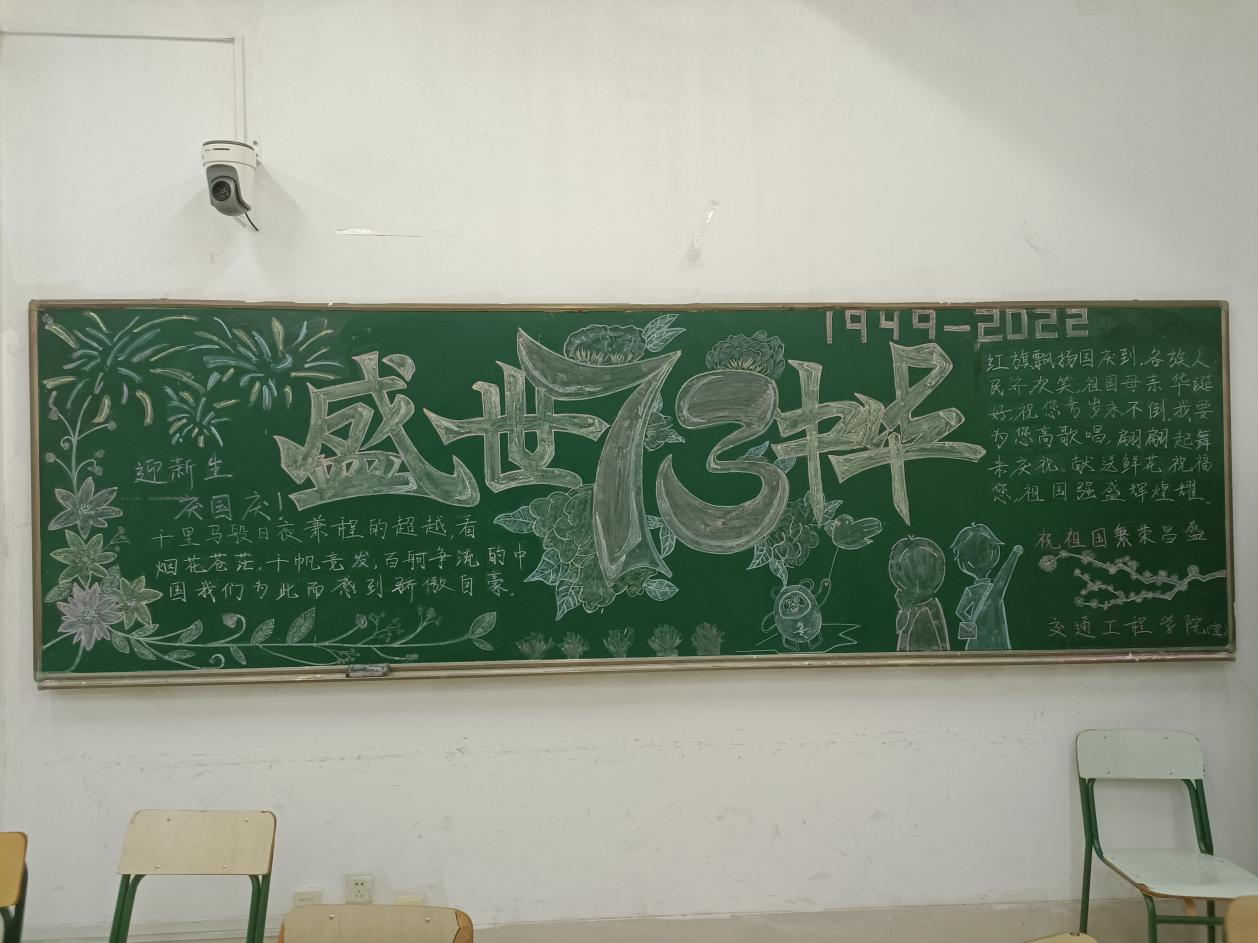 1949-2022
盛世73华
迎新生
庆国庆!
十里马殷日夜兼程的超越,看
烟花苍茫,千帆竞发,百舸争流的中
国我们为此而感到骄傲自豪.
红旗飘扬国庆到,各族人
民齐次笑.祖国母亲华诞
好.祝您青岁永不倒.我要
为您高歌唱,翩翩起舞
来庆祝.献送鲜花祝福
您,祖国强盛辉煌耀.
祝祖国繁荣昌盛
交通工程学院